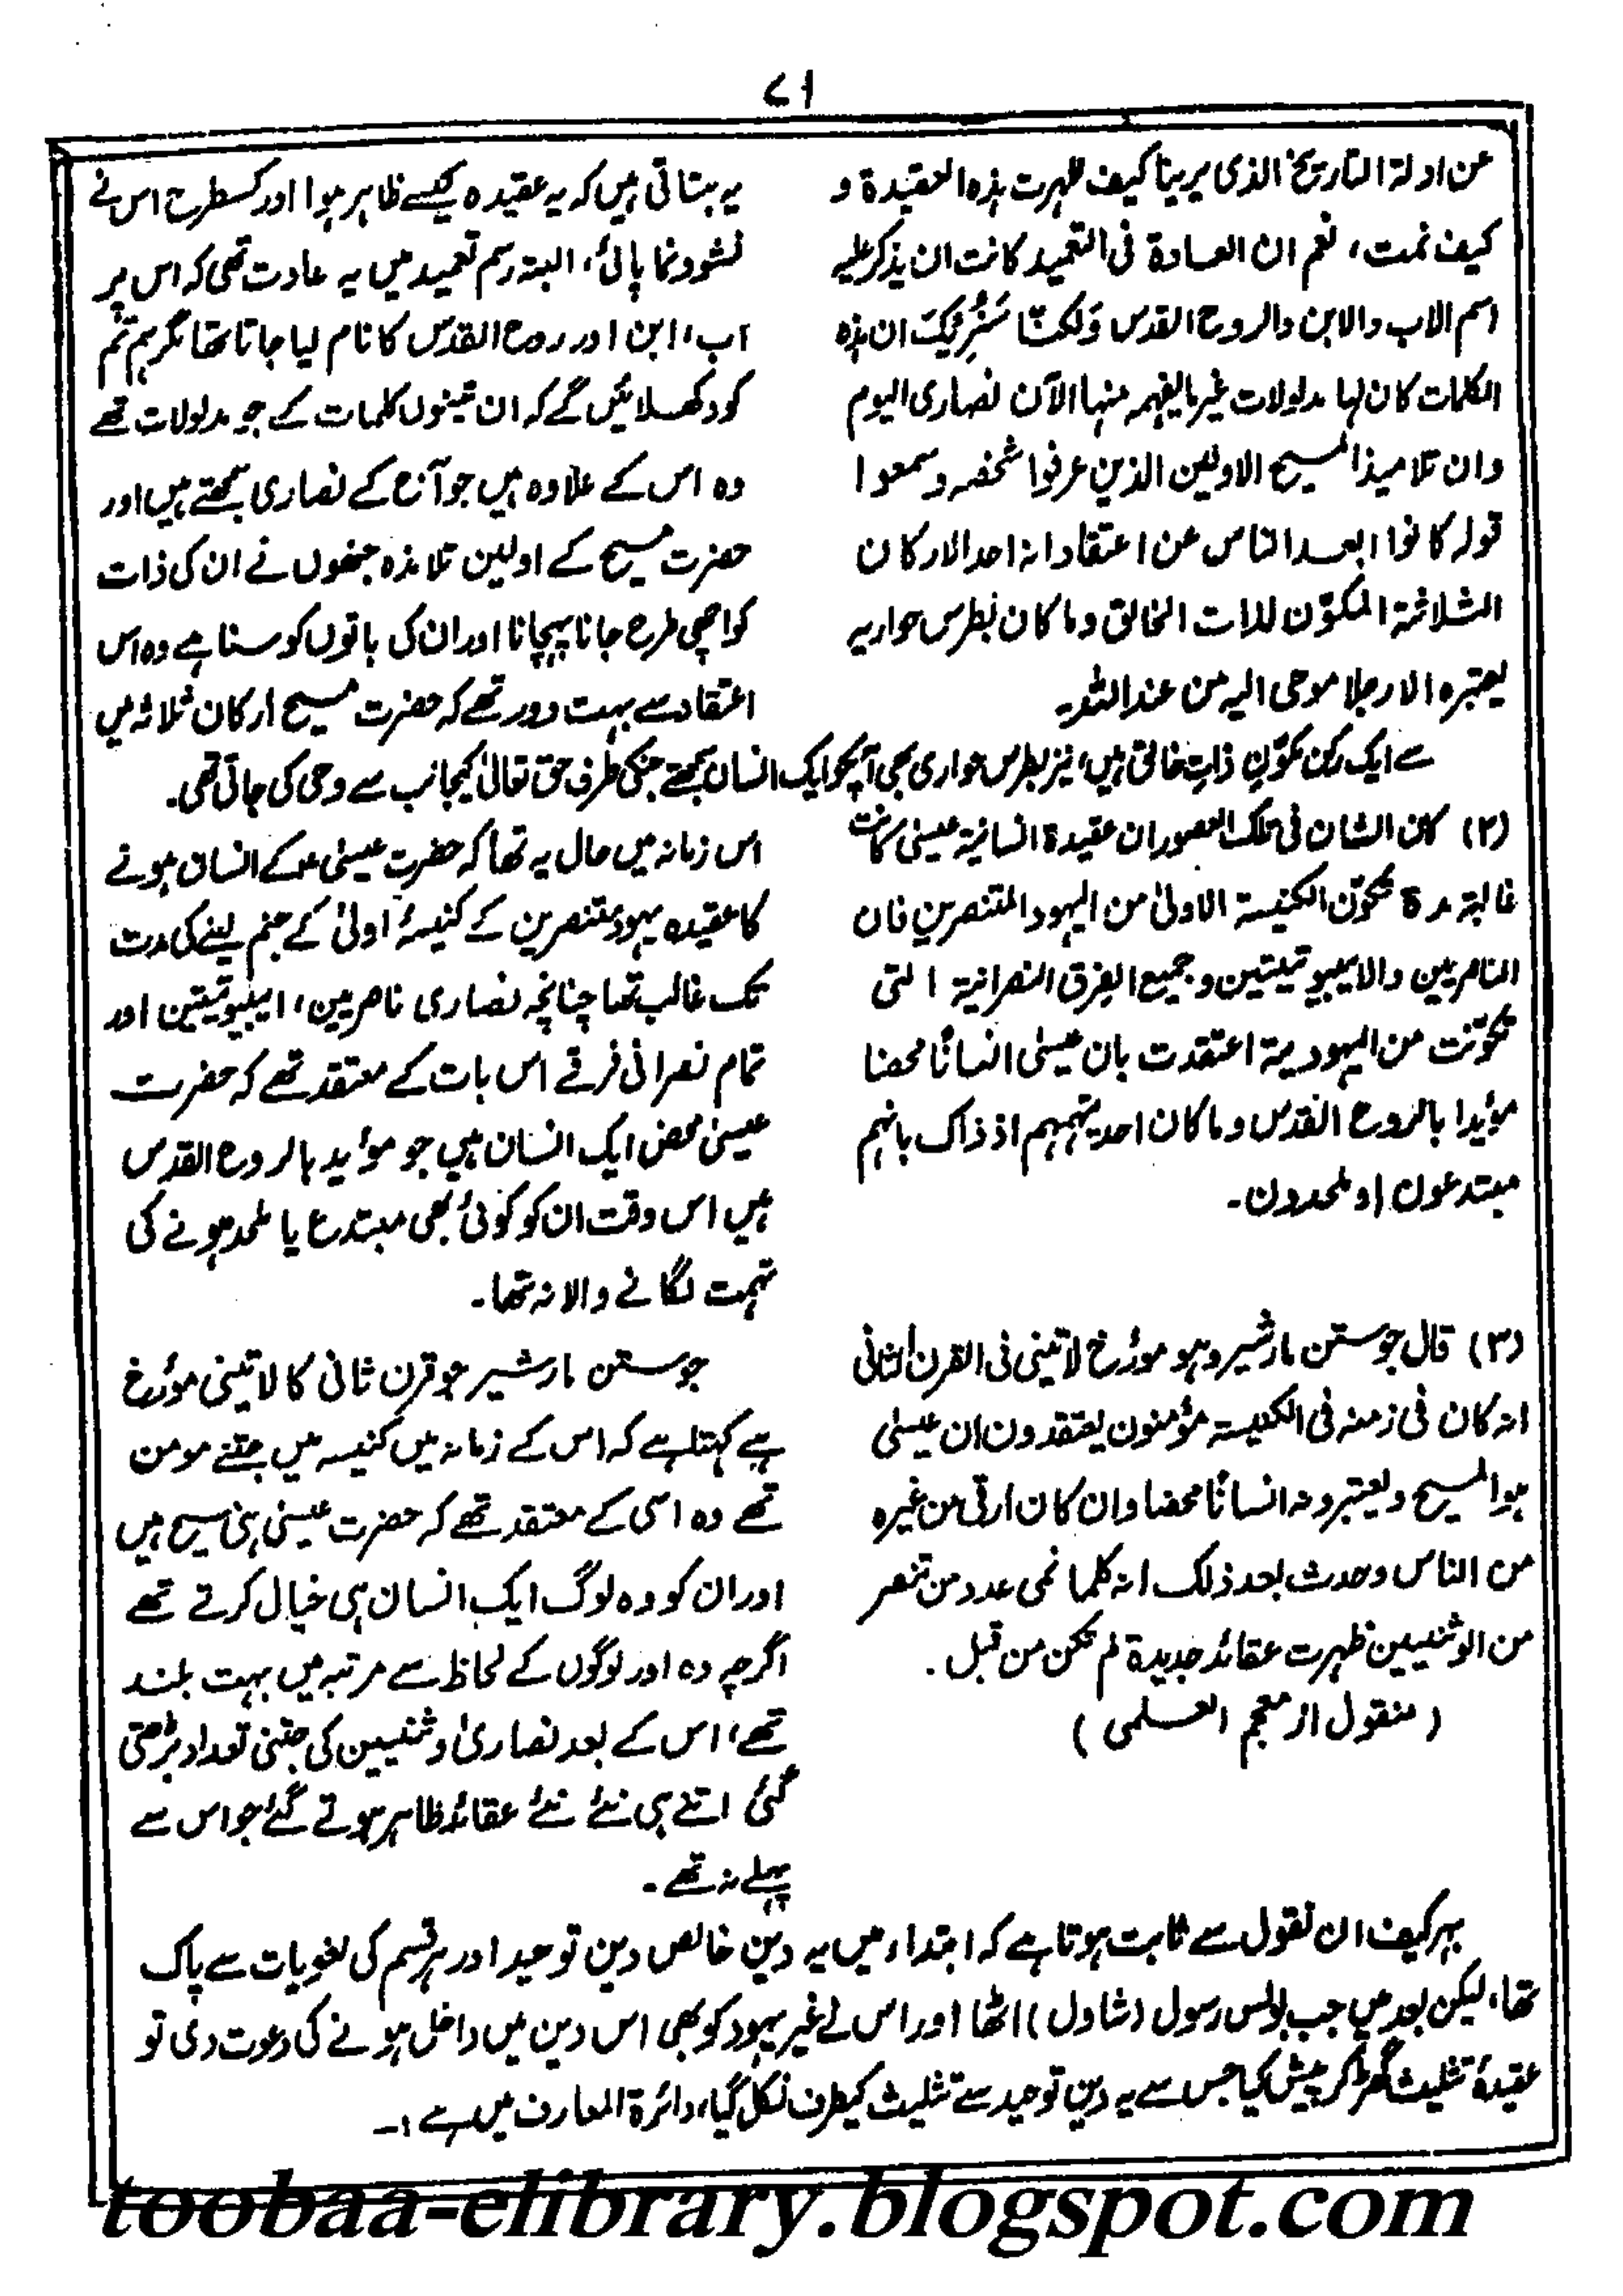 ۷۱
عن ادلۃ التاریخ الذی یرینا کیف ظہرت ہذہ العقیدۃ و
کیف نمت، نعم ان العادۃ فی التعمید کانت ان یذکر علیہ
اسم الاب والابن والروح القدس وَلکنّا سَنُرِیکَ ان ہذہ
الکلمات کان لہا مدلولات غیر ما یفہمہ منہا الآن نصاری الیوم
وان تلامیذ المسیح الاولین الذین عرفوا شخصہ وسمعوا
قولہ کانوا ابعد الناس عن اعتقاد انہ احد الارکان
الثلاثۃ المکوّن لذات الخالق وما کان بطرس حواریہ
یعتبرہ الا رجلا موحی الیہ من عند اللہ۔
یہ بتاتی ہیں کہ یہ عقیدہ کیسے ظاہر ہوا اور کسطرح اس نے
نشوونما پائی، البتہ رسم تعمید میں یہ عادت تھی کہ اس پر
اب، ابن اور روح القدس کا نام لیا جاتا تھا مگر ہم تم
کو دکھلائیں گے کہ ان تینوں کلمات کے جو مدلولات تھے
وہ اس کے علاوہ ہیں جو آج کے نصاری سمجھتے ہیں اور
حضرت مسیح کے اولین تلامذہ جنھوں نے ان کی ذات
کو اچھی طرح جانا پہچانا اور ان کی باتوں کو سنا ہے وہ اس
اعتقاد سے بہت دور تھے کہ حضرت مسیح ارکان ثلاثہ میں
سے ایک رکن مکوّنِ ذاتِ خالق ہیں، نیز بطرس حواری بھی آپکو ایک انسان سمجھتے جنکی طرف حق تعالیٰ کیجانب سے وحی کی جاتی تھی۔
(۲) کان الشان فی تلک العصور ان عقیدۃ انسانیۃ عیسیٰ کانت
غالبۃ مدۃ تکوّن الکنیسۃ الاولیٰ من الیہود المتنصرین فان
الناصریین والایبیوتیتین وجمیع الفِرق النصرانیۃ التی
تکوّنت من الیہودیۃ اعتقدت بان عیسیٰ انسانًا محضا
مؤیدا بالروح القدس وما کان احد یتہمہم اذ ذاک بانہم
مبتدعون او ملحدون۔
اس زمانہ میں حال یہ تھا کہ حضرت عیسیٰ ؑ کے انسان ہونے
کا عقیدہ یہود متنصرین کے کنیسۂ اولیٰ کے جنم لینے کی مدت
تک غالب تھا چنانچہ نصاری ناصریین، ایبیوتیتین اور
تمام نصرانی فرقے اس بات کے معتقد تھے کہ حضرت
عیسیٰ محض ایک انسان ہیں جو مؤید بالروح القدس
ہیں اس وقت ان کو کوئی بھی مبتدع یا ملحد ہونے کی
تہمت لگانے والا نہ تھا۔
(۳) قال جوستن مارشیر وہو مورٔخ لاتینی فی القرن الثانی
انہ کان فی زمنہ فی الکنیسۃ مؤمنون یعتقدون ان عیسیٰ
ہو المسیح ویعتبرونہ انسانًا محضا وان کان ارقیٰ من غیرہ
من الناس وحدث بعد ذلک انہ کلما نمی عدد من تنصر
من الوثنیین ظہرت عقائد جدیدۃ لم تکن من قبل۔
(منقول از معجم العلمی)
جوستن مارشیر جو قرن ثانی کا لاتینی مورٔخ
ہے کہتا ہے کہ اس کے زمانہ میں کنیسہ میں جتنے مومن
تھے وہ اسی کے معتقد تھے کہ حضرت عیسیٰ ہی مسیح ہیں
اور ان کو وہ لوگ ایک انسان ہی خیال کرتے تھے
اگرچہ وہ اور لوگوں کے لحاظ سے مرتبہ میں بہت بلند
تھے، اس کے بعد نصاریٰ وثنیین کی جتنی تعداد بڑھتی
گئی اتنے ہی نئے نئے عقائد ظاہر ہوتے گئے جو اس سے
پہلے نہ تھے۔
بہرکیف ان نقول سے ثابت ہوتا ہے کہ ابتداء میں یہ دین خالص دین توحید اور ہر قسم کی لغویات سے پاک
تھا، لیکن بعد میں جب پولس رسول (شاول) اٹھا اور اس نے غیر یہود کو بھی اس دین میں داخل ہونے کی دعوت دی تو
عقیدۂ تثلیث گھڑ کر پیش کیا جس سے یہ دین توحید سے تثلیث کیطرف نکل گیا، دائرۃ المعارف میں ہے :۔
toobaa-elibrary.blogspot.com